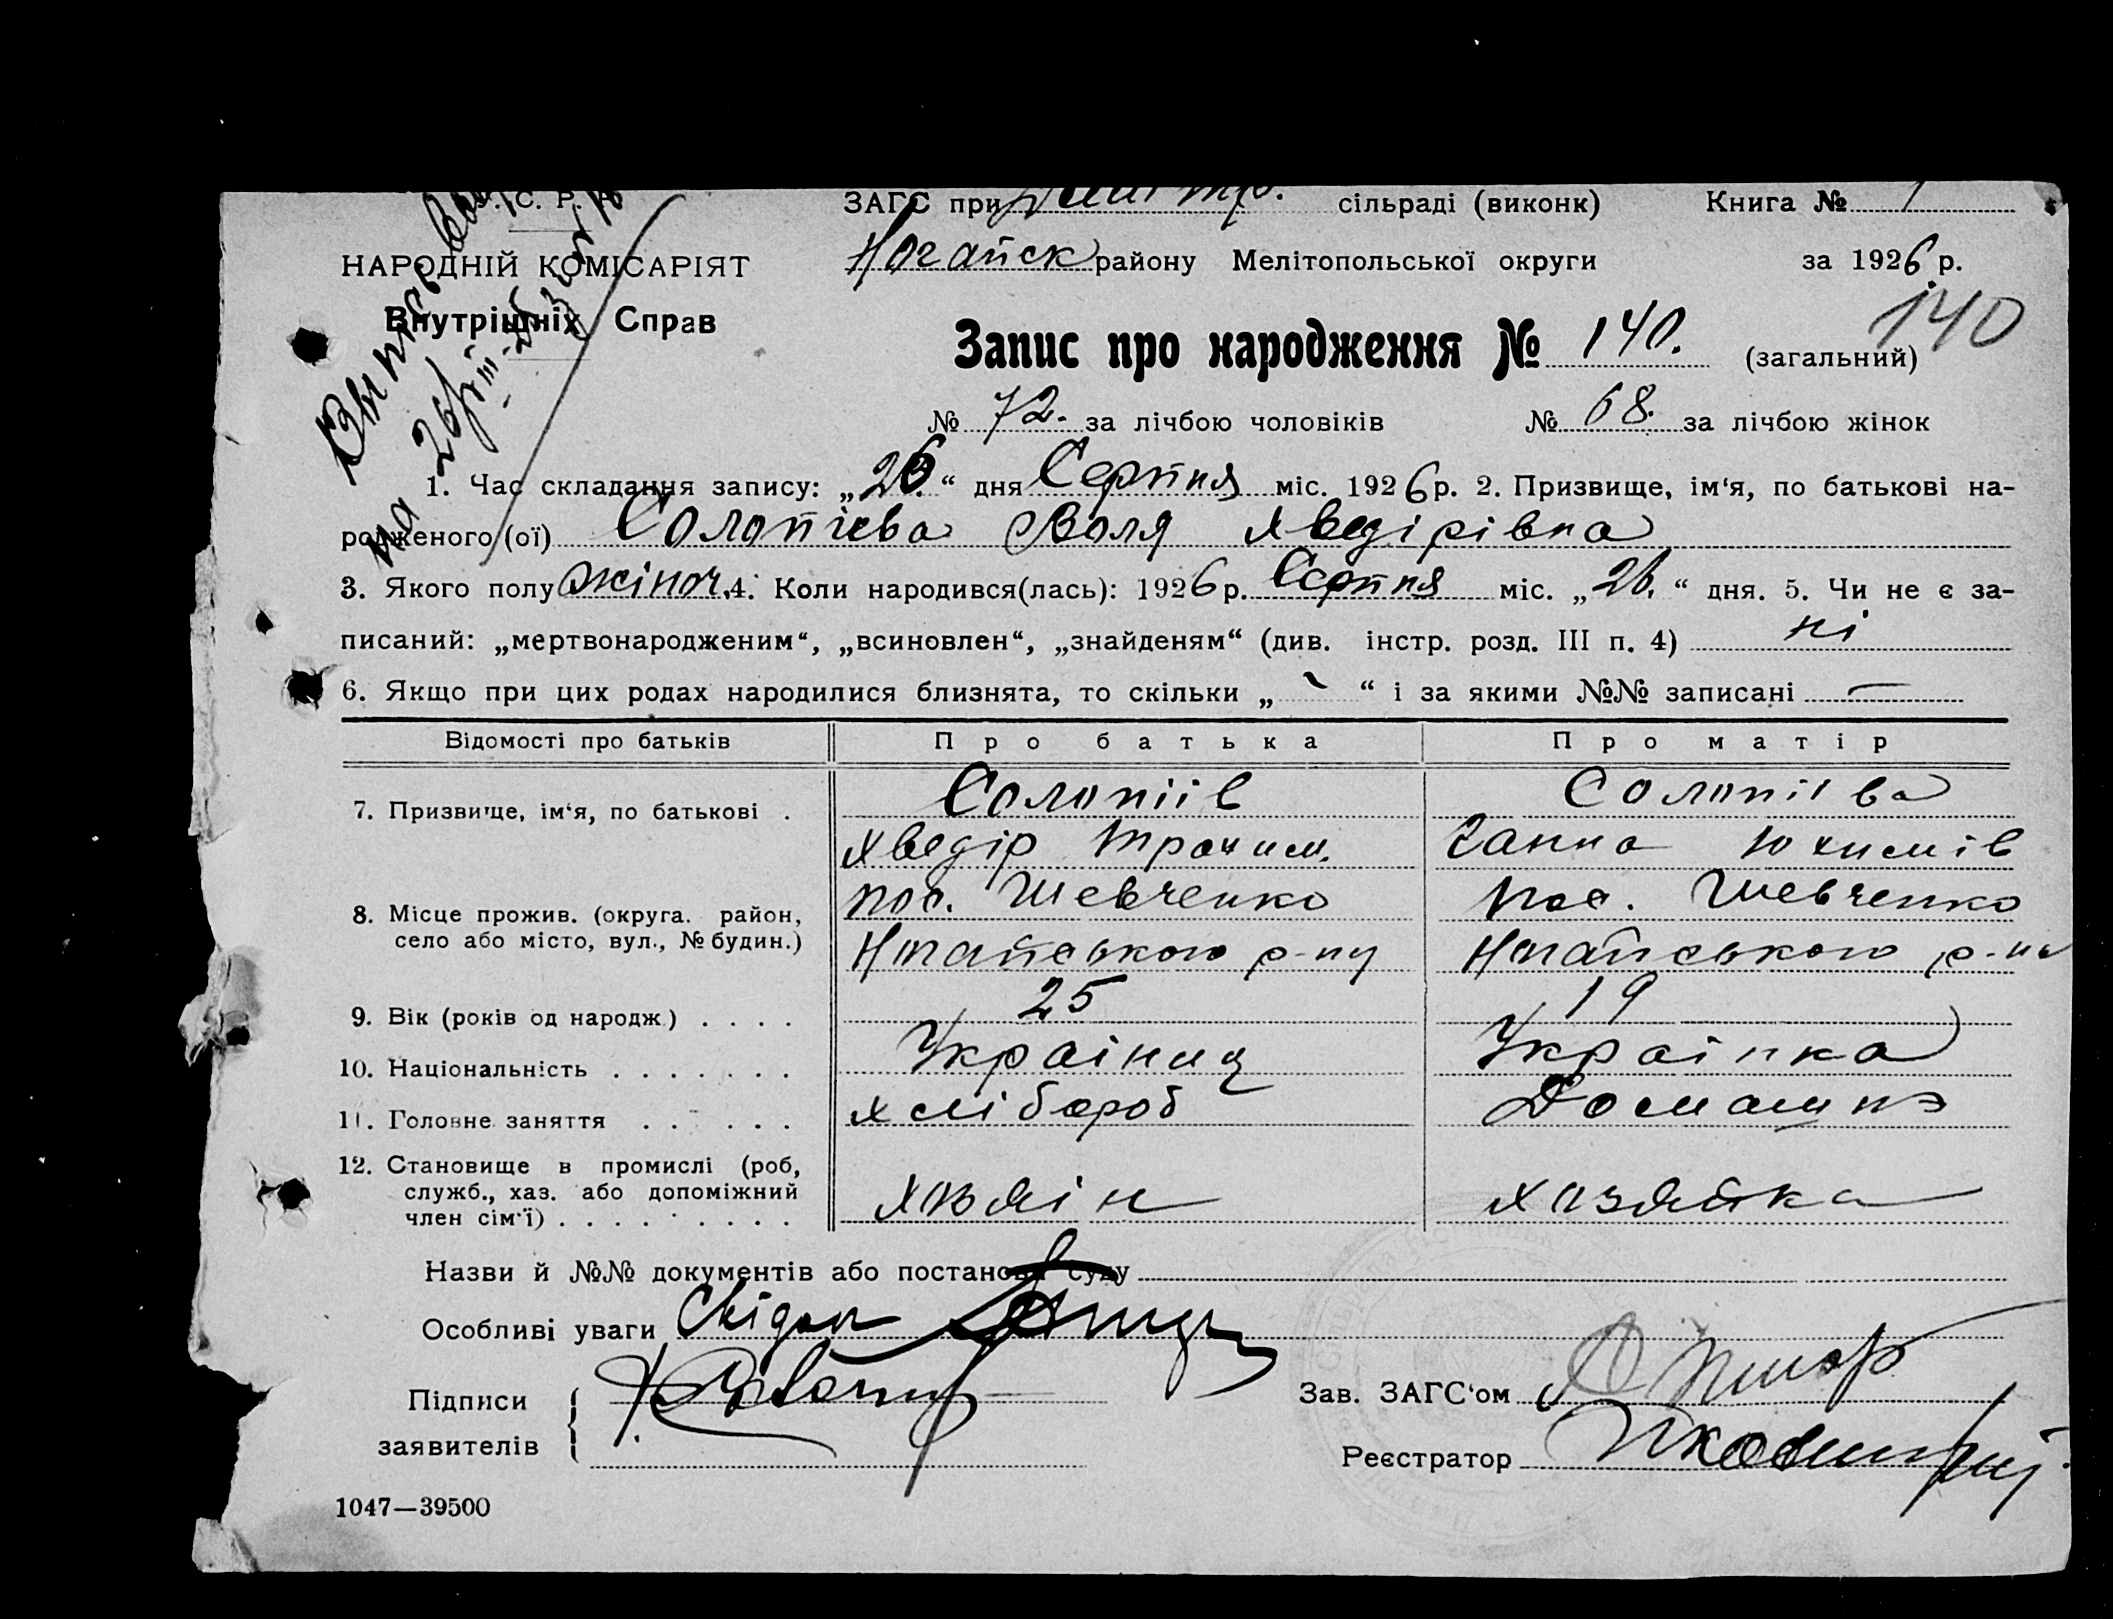 У. С. Р. Р.
ЗАГС при сільраді (виконк) Книга № 1
НАРОДНІЙ КОМІСАРІЯТ
Ногайск району Мелітопольської округи за 1926 р.
Внутрішніх Справ
140
Запис про народження № 140. (загальний)
№ 72. за лічбою чоловіків № 68. за лічбою жінок
1. Час складання запису: „26.“ дня Серпня міс. 1926 р. 2. Призвище, ім‘я, по батькові на-
родженого (ої) Солопієва Воля Хведірівна
3. Якого полу жіноч. 4. Коли народився(лась): 1926 р. Серпня міс. „26.“ дня. 5. Чи не є за-
писаний: „мертвонародженим“, „всиновлен“, „знайденям“ (див. інстр. розд. III п. 4) ні
6. Якщо при цих родах народилися близнята, то скільки „ - “ і за якими №№ записані —
Відомості про батьків Про батька Про матір
7. Призвище, ім‘я, по батькові . Солопіїв Солопіїва
Хведір Трохим. Ганна Юхимів
8. Місце прожив. (округа. район, пос. Шевченко пос. Шевченко
село або місто, вул., № будин.) Ногайського р-ну Ногайського р-ну
9. Вік (років од народж.) . . . . 25 19
10. Національність . . . . . . . Українец Українка
11. Головне заняття . . . . . . хлібороб Домашнэ
12. Становище в промислі (роб,
служб., хаз. або допоміжний хозяін хозяйка
член сім‘ї) . . . . . . . . .
Назви й №№ документів або постанови суду
Особливі уваги Свідки
Підписи Зав. ЗАГС‘ом
заявителів
Реєстратор
1047—39500